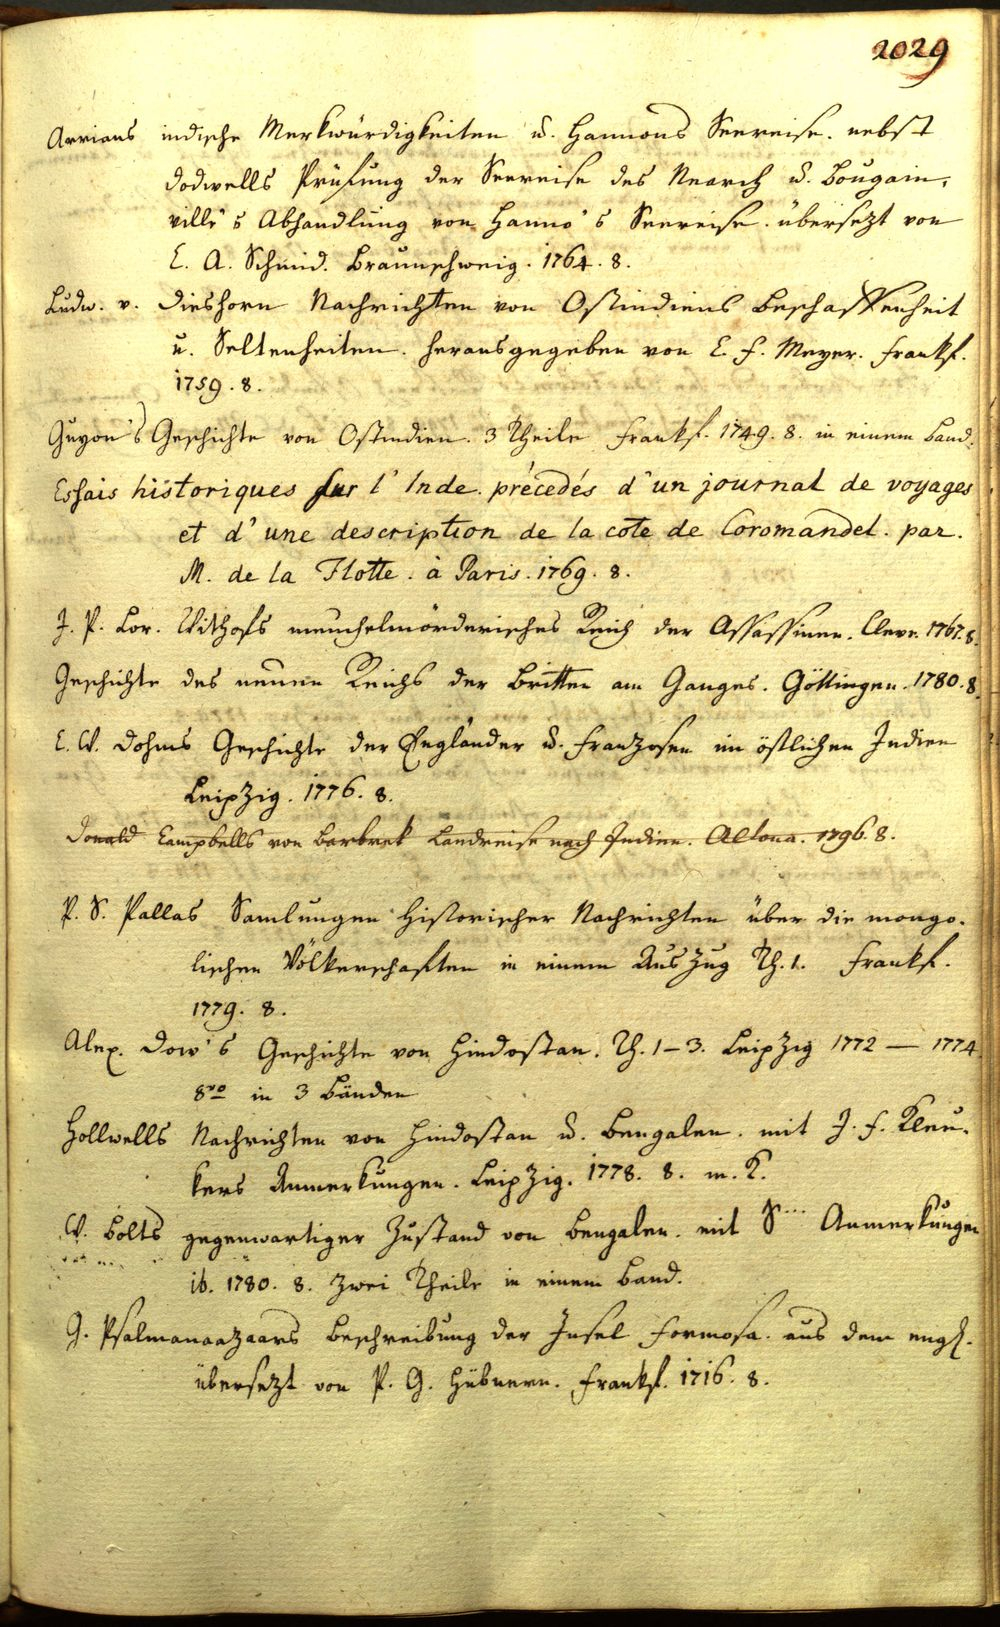 2029
Arrians indische Merkwürdigkeiten u. Hannons Seereise. nebst
Dodwells Prüfung der Seereise des Nearch u. Bougain-
ville's Abhandlung von Hanno's Seereise. übersezt von
C. A. Schmid. Braunschweig. 1764. 8.
Ludw. v. Dieshorn Nachrichten von Ostindiens Beschaffenheit
u. Seltenheiten. herausgegeben von C. F. Meyer. Frankf.
1759. 8.
Guyon's Geschichte von Ostindien. 3 Theile Frankf. 1749. 8. in einem Band.
Essais historiques sur l'Inde. précedés d'un journal de voyages
et d'une description de la cote de Coromandel. par.
M. de la Flotte. à Paris. 1769. 8.
J. P. Lor. Withofs meuchelmörderisches Reich der Assassinen. Cleve. 1767. 8.
Geschichte des neuen Reichs der Britten am Ganges. Göttingen. 1780. 8.
C. W. Dohms Geschichte der Engländer u. Franzosen im östlichen Indien
Leipzig. 1776. 8.
Donald Campbells von Barbrek Landreise nach Indien. Altona. 1796. 8.
P. S. Pallas Samlungen historischer Nachrichten über die mongo-
lischen Völkerschaften in einem Auszug Th. 1. Frankf.
1779. 8.
Alex. Dow's Geschichte von Hindostan. Th. 1-3. Leipzig 1772 — 1774
8vo in 3 Bänden
Hollwells Nachrichten von Hindostan u. Bengalen. mit J. F. Kleu-
kers Anmerkungen. Leipzig. 1778. 8. m. K.
W. Bolts gegenwartiger Zustand von Bengalen. mit Anmerkungen
ib. 1780. 8. zwei Theile in einem Band.
G. Psalmanaazaars Beschreibung der Insel Formosa. aus dem engl.
übersezt von P. G. Hübnern. Frankf. 1716. 8.